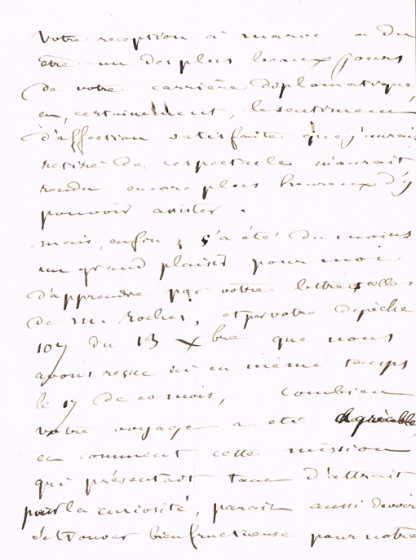 Votre réception à maroc a du
être un des plus beaux jours
de votre carrière diplomatique
et, certainement, le sentiment
d'affection satisfaite que j'aurais
retiré de ce spectacle m'aurait
rendu encore plus heureux d'y
pouvoir assister.
mais, enfin, ç'a été du moins
un grand plaisir pour moi
d'apprendre par votre lettre
de m. Roches, et par votre dépêche
107 du 13 Xbre que nous
avons reçue ici en même temps
le 17 de ce mois, combien
votre voyage a été agréable
et comment cette mission
qui présentait tant d'attrait
pour la curiosité, parait aussi devoir
être fructueuse pour notre